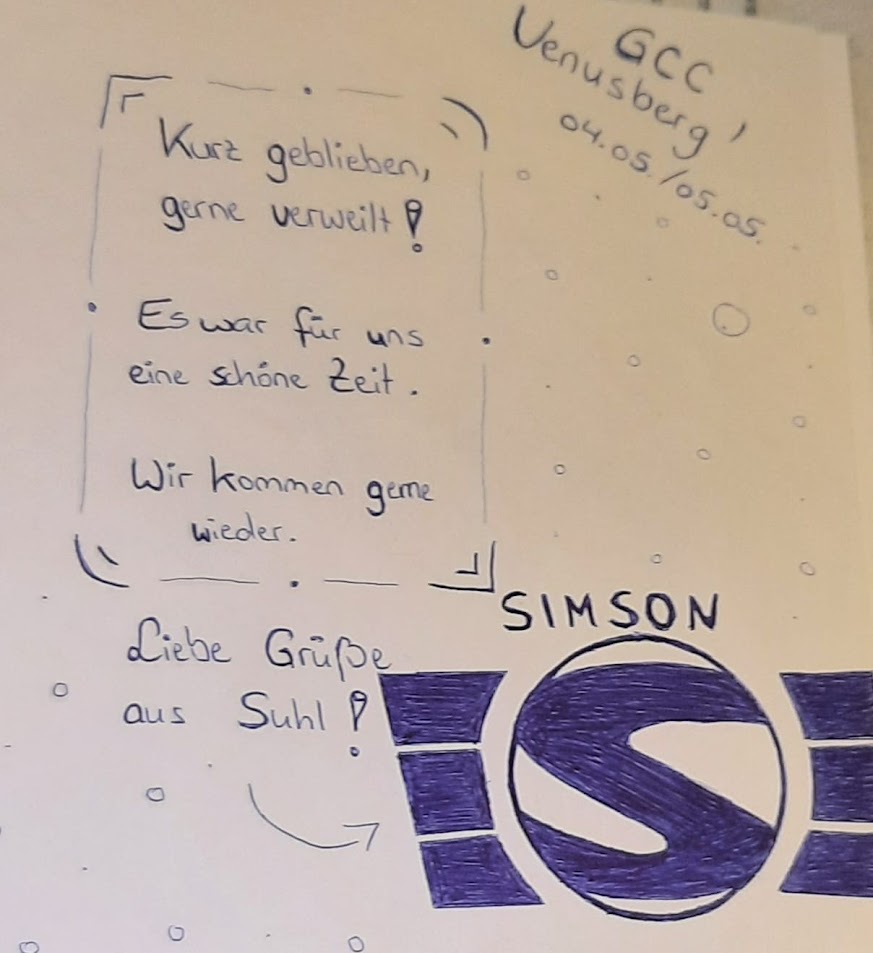 GCC
Venusberg,
04.05./05.05.
Kurz geblieben,
gerne verweilt!
Es war für uns
eine schöne Zeit.
Wir kommen gerne
wieder.
Liebe Grüße
aus Suhl!
SIMSON
S